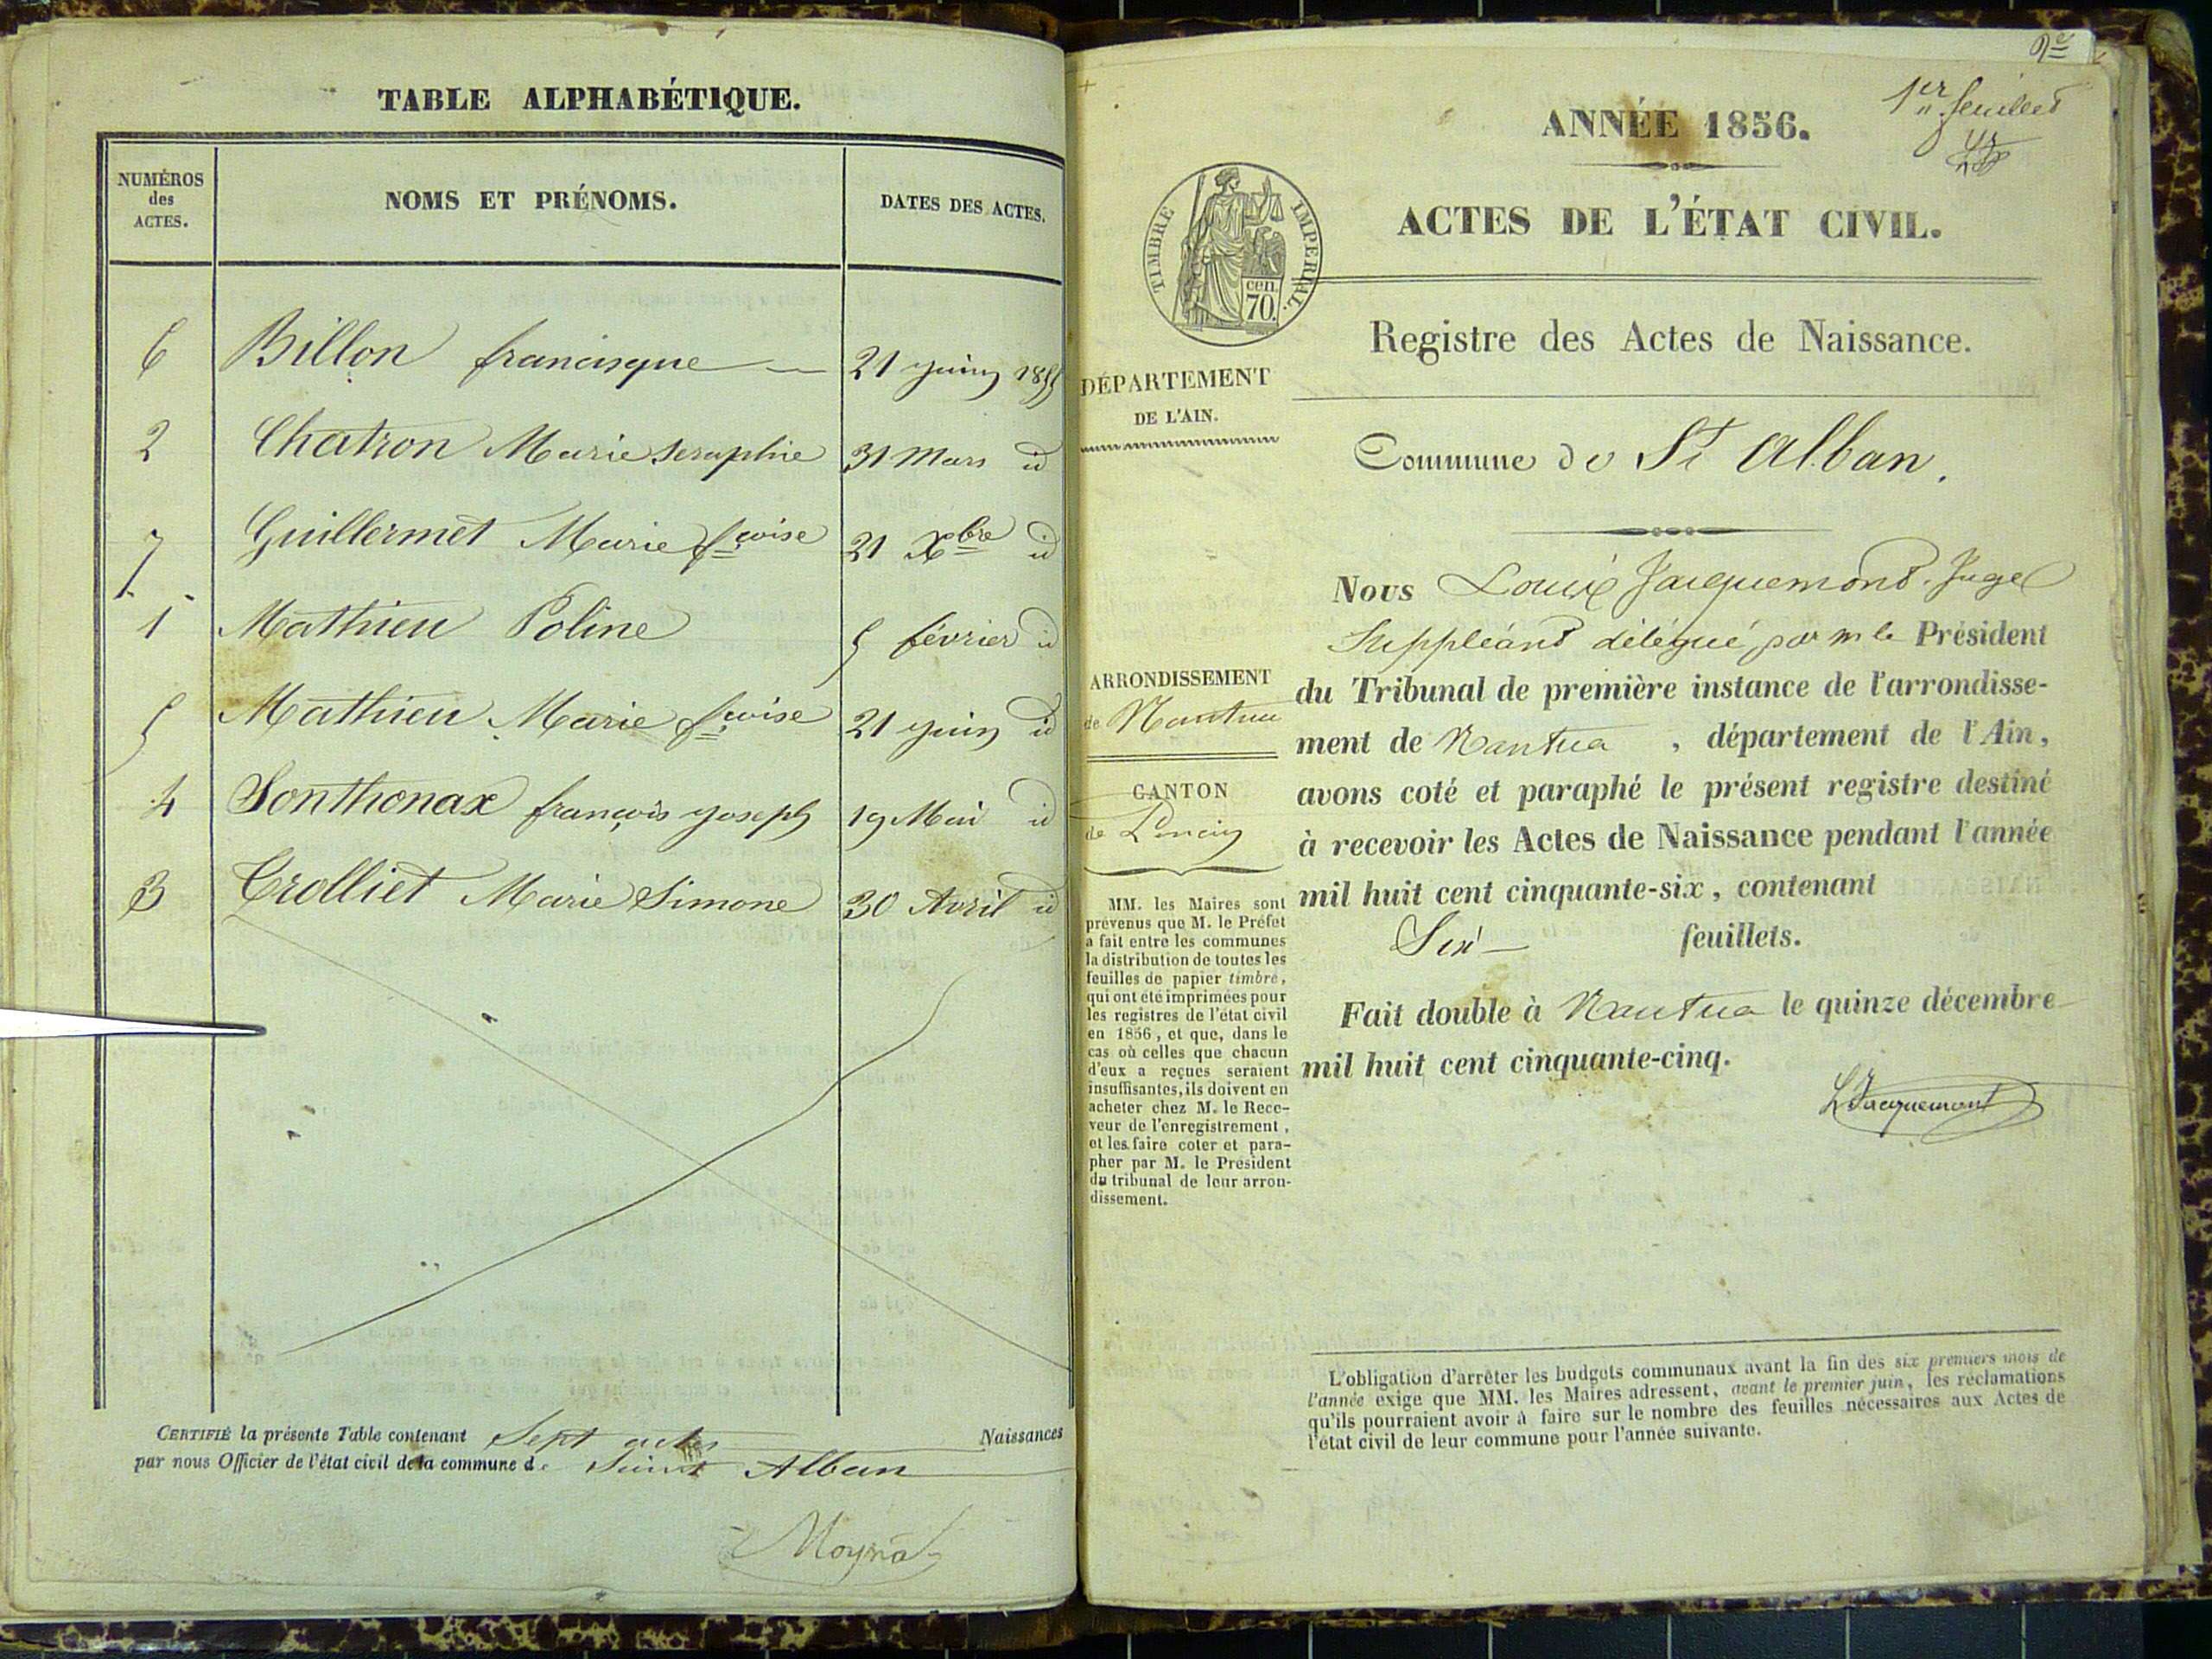 TABLE ALPHABÉTIQUE.
NUMÉROS des ACTES.
NOMS ET PRÉNOMS.
DATES DES ACTES.
6 Billon francisque 21 juin 1855
2 Chatron Marie seraphie 31 Mars id
7 Guillermet Marie fçoise 21 Xbre id
1 Mathieu Poline 5 février id
5 Mathieu Marie fçoise 21 juin id
4 Sonthonax françois joseph 19 Mai id
3 Crolliet Marie Simone 30 Avril id
CERTIFIÉ la présente Table contenant Sept actes Naissances
par nous Officier de l'état civil de la commune de Saint Alban
Moyna
1er feuillet
ANNÉE 1856.
ACTES DE L'ÉTAT CIVIL.
TIMBRE IMPERIAL.
cen.
70.
Registre des Actes de Naissance.
DÉPARTEMENT
DE L'AIN.
Commune de St Alban.
ARRONDISSEMENT
de Nantua
CANTON
de Poncin
MM. les Maires sont
prévenus que M. le Préfet
a fait entre les communes
la distribution de toutes les
feuilles de papier timbré,
qui ont été imprimées pour
les registres de l'état civil
en 1856, et que, dans le
cas où celles que chacun
d'eux a reçues seraient
insuffisantes, ils doivent en
acheter chez M. le Rece-
veur de l'enregistrement,
et les faire coter et para-
pher par M. le Président
du tribunal de leur arron-
dissement.
Nous Louis Jacquemont Juge
Suppléant délégué par m le Président
du Tribunal de première instance de l'arrondisse-
ment de Nantua, département de l'Ain,
avons coté et paraphé le présent registre destiné
à recevoir les Actes de Naissance pendant l'année
mil huit cent cinquante-six, contenant
Six feuillets.
Fait double à Nantua le quinze décembre
mil huit cent cinquante-cinq.
LJacquemont
L'obligation d'arrêter les budgets communaux avant la fin des six premiers mois de
l'année exige que MM. les Maires adressent, avant le premier juin, les réclamations
qu'ils pourraient avoir à faire sur le nombre des feuilles nécessaires aux Actes de
l'état civil de leur commune pour l'année suivante.